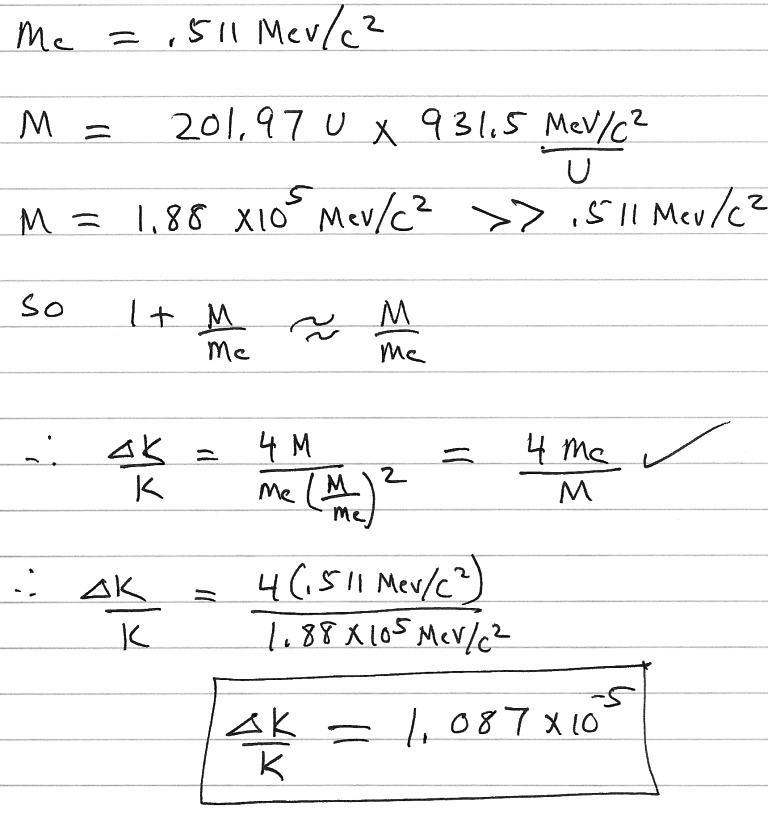 me = .511 Mev/c²
M = 201.97 U x 931.5 MeV/c²/U
M = 1.88 x10⁵ Mev/c² >> .511 Mev/c²
so 1 + M/me ≈ M/me
∴ ΔK/K = 4 M/me (M/me)² = 4 me/M ✓
∴ ΔK/K = 4(.511 Mev/c²)/1.88 x10⁵ Mev/c²
ΔK/K = 1.087 x 10⁻⁵